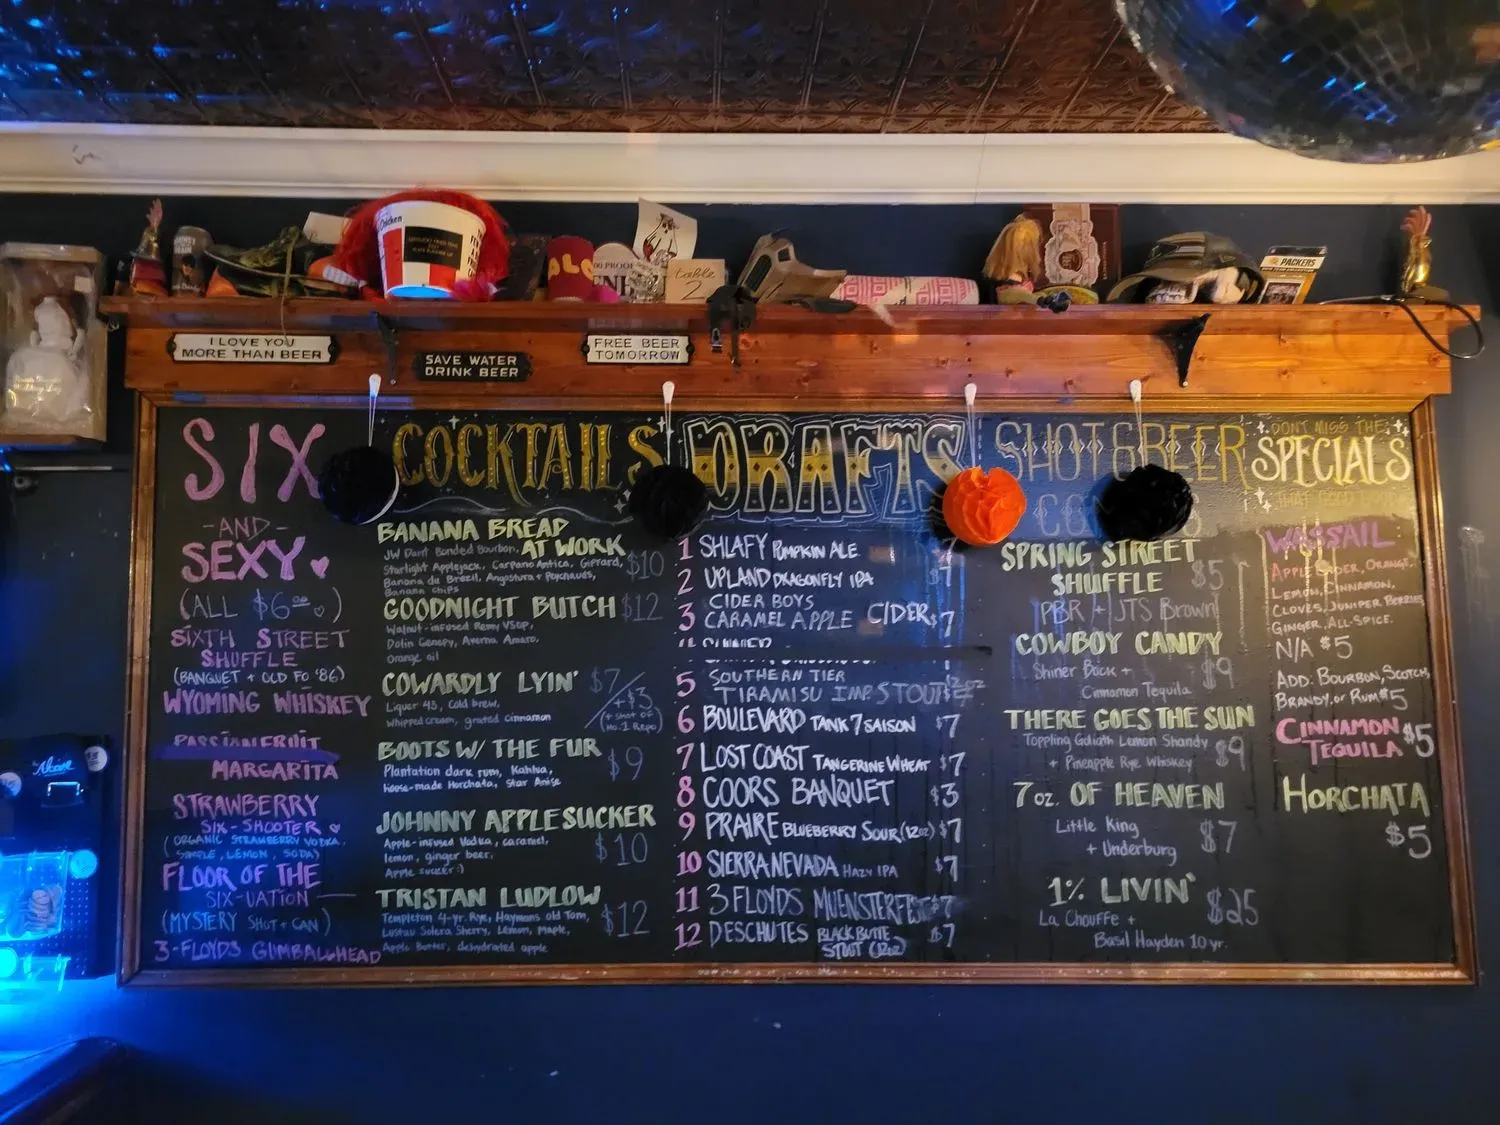 Chicken
100 PROOF
table
2
PACKERS
I LOVE YOU
MORE THAN BEER
SAVE WATER
DRINK BEER
FREE BEER
TOMORROW
SIX
-AND-
SEXY
(ALL $6
)
SIXTH STREET
SHUFFLE
(BANQUET + OLD FO '86)
WYOMING WHISKEY
PASSIONFRUIT
MARGARITA
STRAWBERRY
SIX-SHOOTER
(ORGANIC STRAWBERRY VODKA,
SIMPLE, LEMON, SODA)
FLOOR OF THE
SIX-UATION
(MYSTERY SHOT + CAN)
3-FLOYDS GUMBALLHEAD
COCKTAILS
BANANA BREAD
AT WORK
JW Dant Bonded Bourbon,
Starlight Applejack, Carpano Antica, Giffard,
Banana du Brezil, Angostura + Peychauds,
Banana chips
$10
GOODNIGHT BUTCH $12
Walnut-infused Remy VSOP,
Dolin Genepy, Averna Amaro,
orange oil
COWARDLY LYIN' $7
Liquer 43, Cold brew,
whipped cream, grated cinnamon
+$3
(+ shot of
No. 1 Repo)
BOOTS W/ THE FUR $9
Plantation dark rum, Kahlua,
house-made Horchata, Star Anise
JOHNNY APPLESUCKER
Apple-infused Vodka, caramel,
lemon, ginger beer,
Apple sucker :)
$10
TRISTAN LUDLOW
Templeton 4-yr. Rye, Haymans old Tom,
Lustau Solera Sherry, Lemon, Maple,
Apple Butter, dehydrated apple
$12
DRAFTS
1 SHLAFY PUMPKIN ALE
2 UPLAND DRAGONFLY IPA $7
3 CIDER BOYS
CARAMEL APPLE CIDER $7
5 SOUTHERN TIER
TIRAMISU IMP STOUT
6 BOULEVARD TANK 7 SAISON $7
7 LOST COAST TANGERINE WHEAT $7
8 COORS BANQUET $3
9 PRAIRE BLUEBERRY SOUR (12oz) $7
10 SIERRA NEVADA HAZY IPA $7
11 3 FLOYDS MUENSTERFEST $7
12 DESCHUTES BLACK BUTTE $7
STOUT (12oz)
SHOT & BEER
SPRING STREET
SHUFFLE $5
PBR + JTS Brown
COWBOY CANDY
Shiner Bock + $9
Cinnamon Tequila
THERE GOES THE SUN
Toppling Goliath Lemon Shandy $9
+ Pineapple Rye Whiskey
7 oz. OF HEAVEN
Little King $7
+ Underburg
1% LIVIN'
La Chouffe + $25
Basil Hayden 10 yr.
DONT MISS THE
SPECIALS
WASSAIL
APPLE CIDER, ORANGE,
LEMON, CINNAMON,
CLOVES, JUNIPER BERRIES
GINGER, ALL-SPICE.
N/A $5
ADD: BOURBON, SCOTCH,
BRANDY, OR RUM $5
CINNAMON
TEQUILA $5
HORCHATA
$5